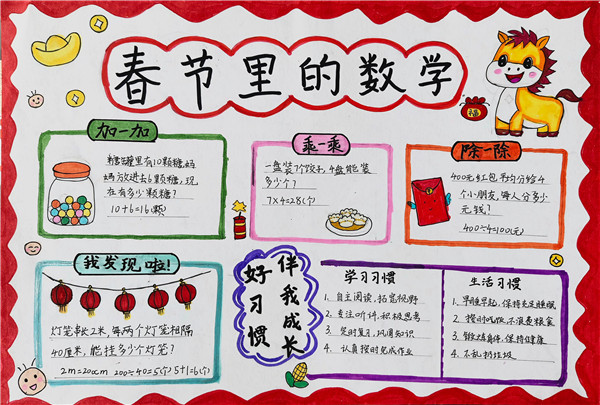 春节里的数学
福
加一加
糖罐里有10颗糖,妈
妈放进去6颗糖,现
在有多少颗糖?
10+6=16(颗)
乘一乘
一盘装7个饺子,4盘能装
多少个?
7×4=28(个)
除一除
400元红包平均分给4
个小朋友,每人分多少
元钱?
400÷4=100(元)
我发现啦!
灯笼长2米,每两个灯笼相隔
40厘米,能挂多少个灯笼?
2m=200cm 200÷40=5(个) 5+1=6(个)
好习惯
伴我成长
学习习惯
1. 自主阅读,拓宽视野
2. 专注听讲,积极思考
3. 定时复习,巩固知识
4. 认真按时完成作业
生活习惯
1. 早睡早起,保持充足睡眠
2. 按时吃饭,不浪费粮食
3. 锻炼身体,保持健康
4. 不乱扔垃圾